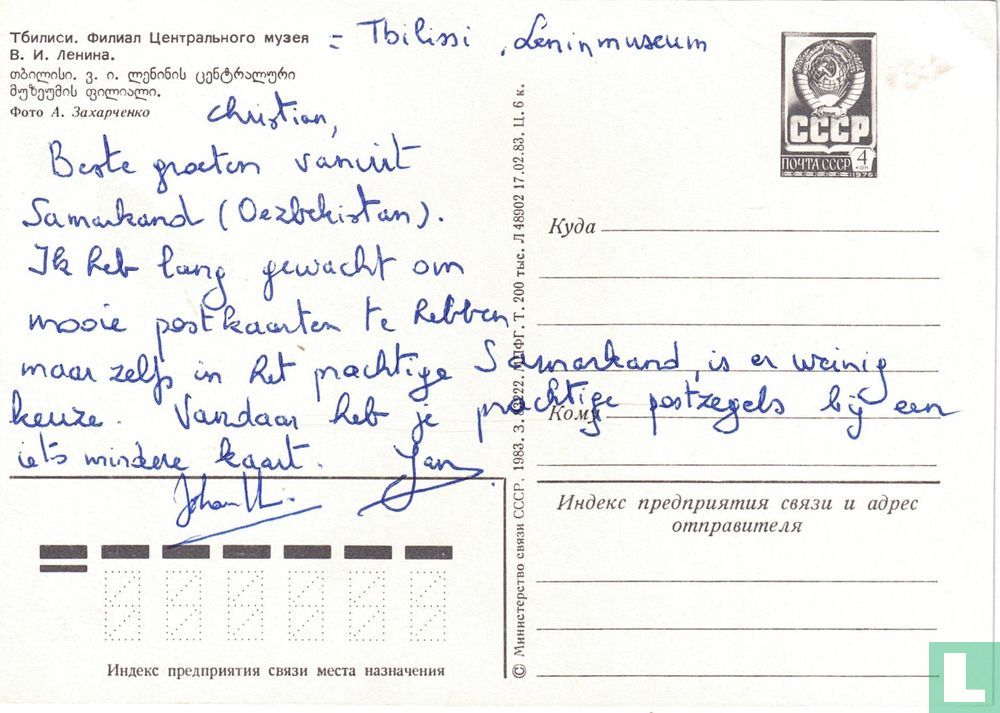 Тбилиси. Филиал Центрального музея
В. И. Ленина.
= Tbilissi , Leninmuseum
თბილისი. ვ. ი. ლენინის ცენტრალური
მუზეუმის ფილიალი.
Фото А. Захарченко
Christian,
Beste groeten vanuit
Samarkand (Oezbekistan).
Ik heb lang gewacht om
mooie postkaarten te hebben
maar zelfs in het prachtige Samarkand, is er weinig
keuze. Vandaar heb je prachtige postzegels bij een
iets mindere kaart.
Jan
Johan
Индекс предприятия связи места назначения
© Министерство связи СССР. 1983. З. ППФГ. Т. 200 тыс. Л 48902 17.02.83. Ц. 6 к.
СССР
ПОЧТА СССР 4
КОП
1976
Куда
Кому
Индекс предприятия связи и адрес
отправителя
L